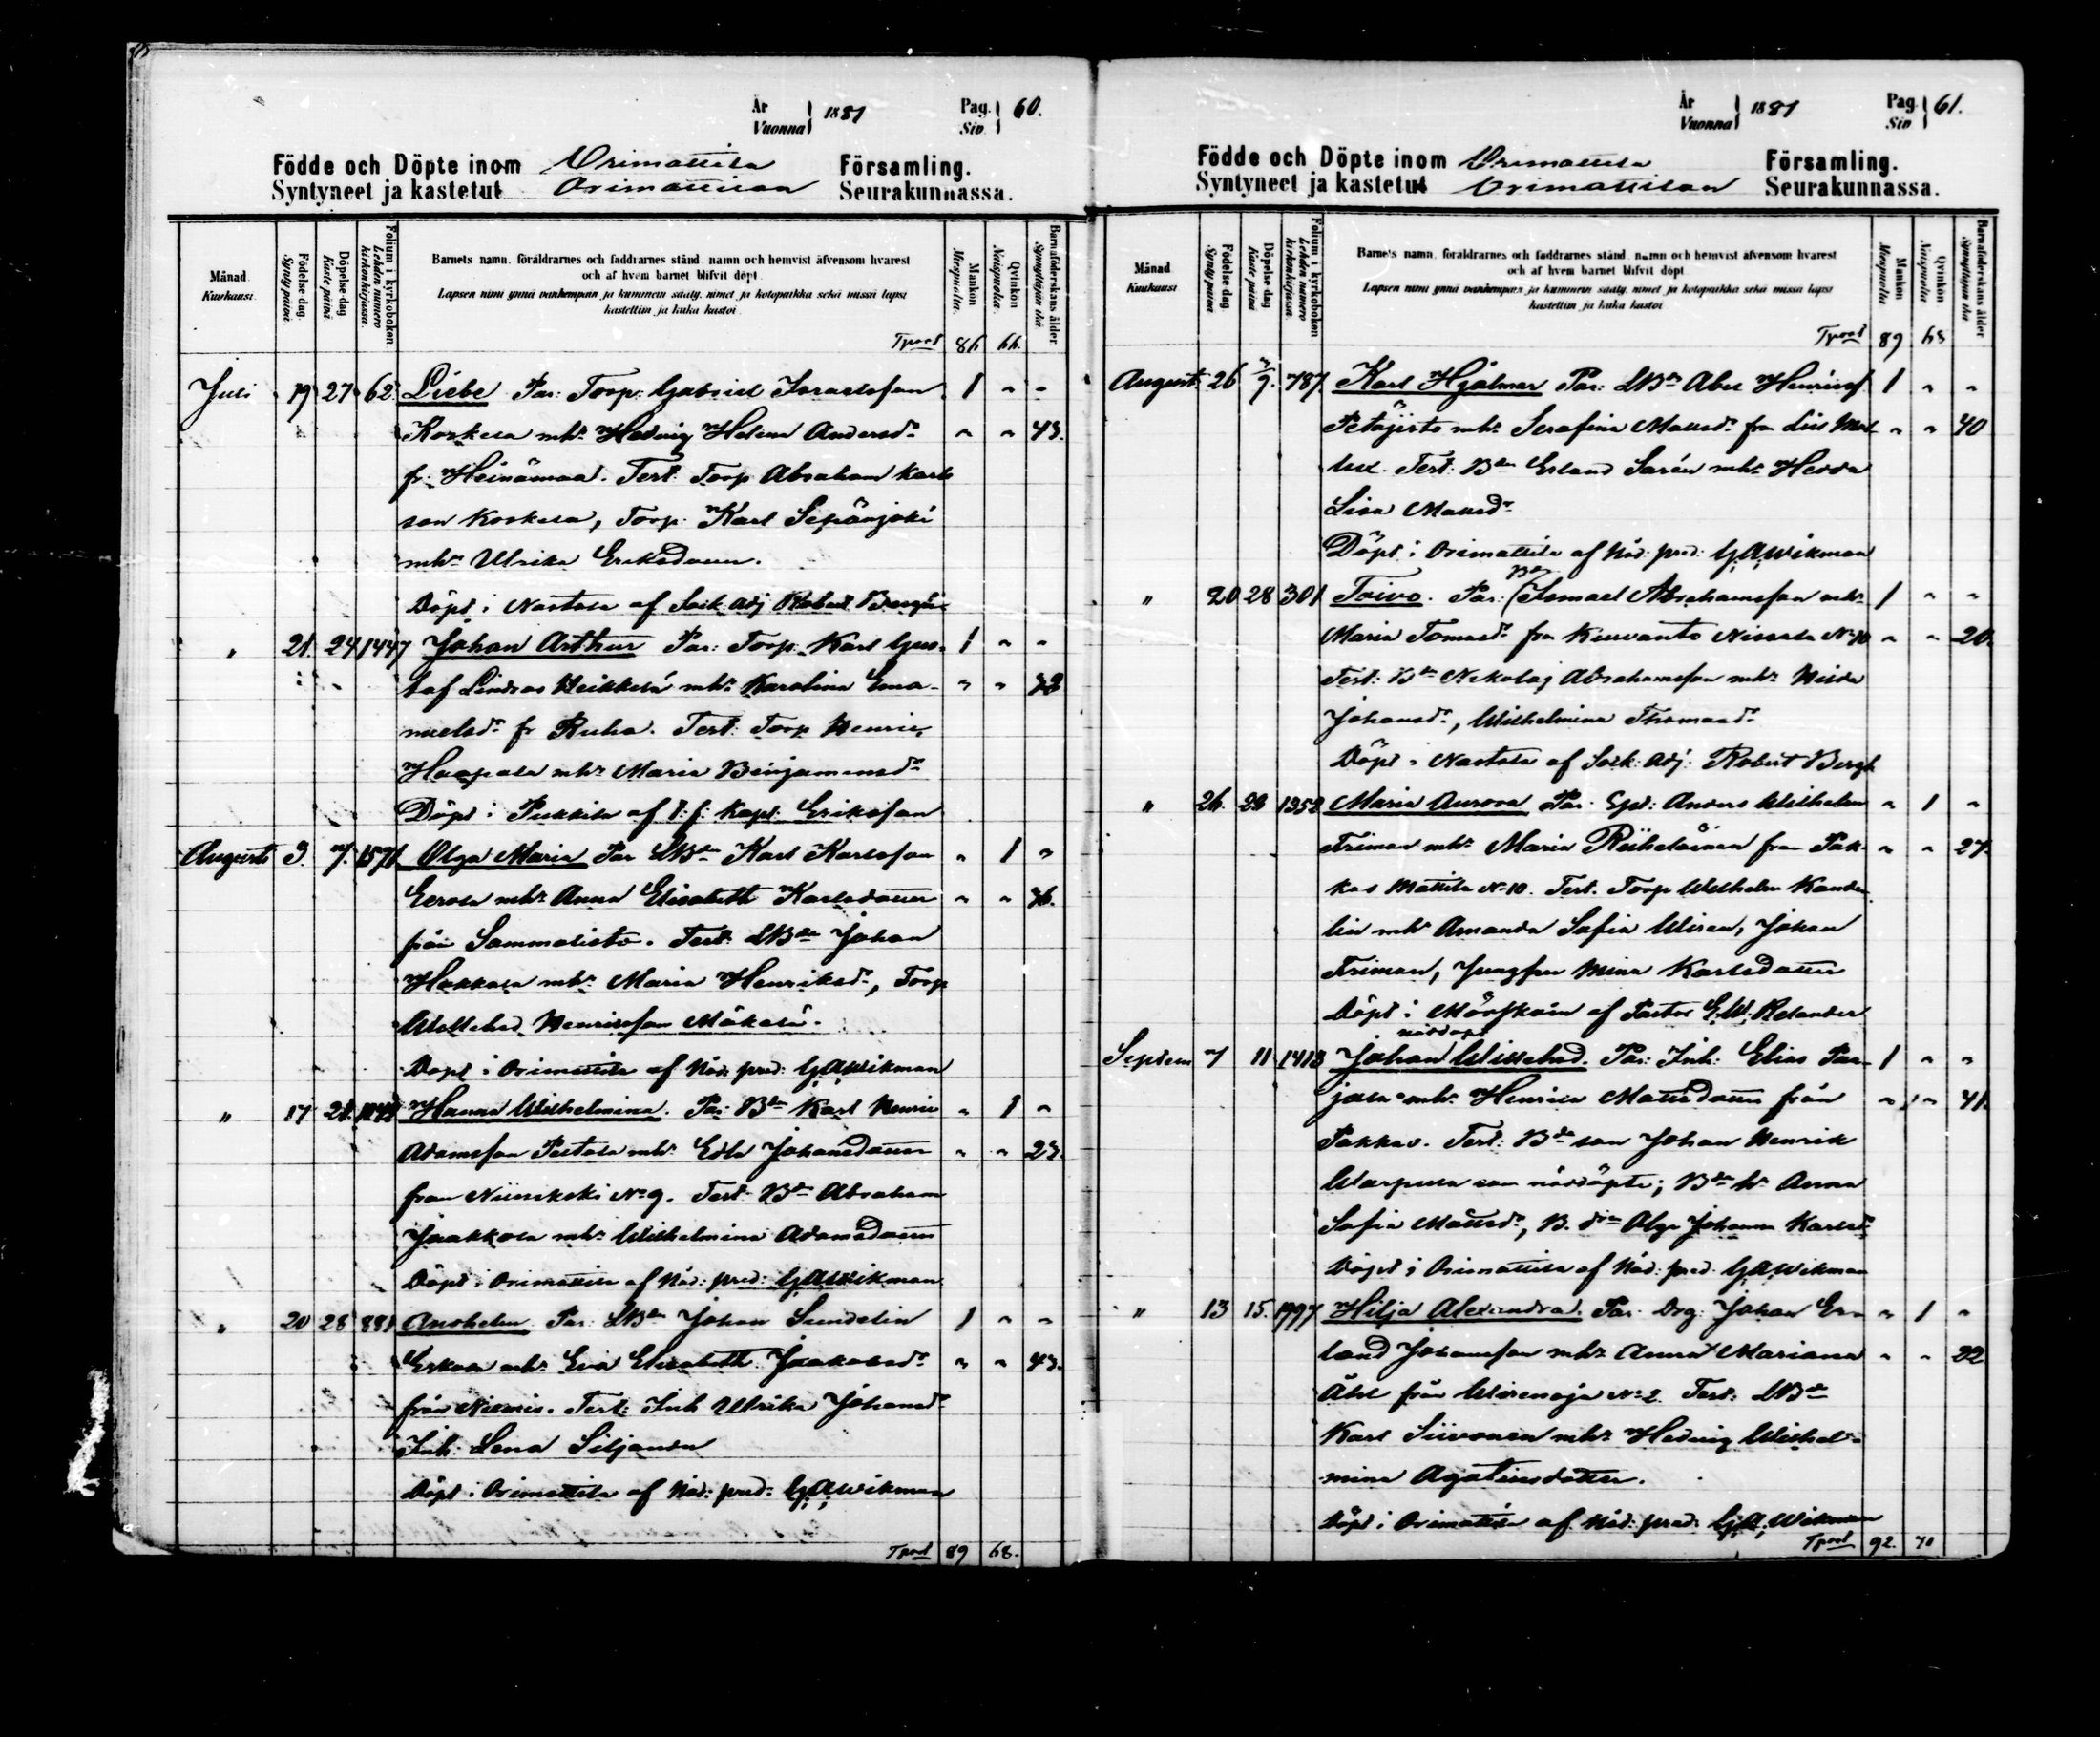 År
Vuonna 1881
Pag.
Siv. 60.
Födde och Döpte inom Orimattila Församling.
Syntyneet ja kastetut Orimattilan Seurakunnassa.
Månad.
Kuukausi.
Födelse dag.
Synty päivä.
Döpelse dag
Kaste päivä
Folium i kyrkoboken
Lehden numero kirkonkirjassa.
Barnets namn, föräldrarnes och faddrarnes stånd, namn och hemvist äfvensom hvarest
och af hvem barnet blifvit döpt.
Lapsen nimi ynnä vanhempain ja kummein sääty, nimet ja kotopaikka sekä missä lapsi
kastettiin ja kuka kastoi.
Mankön
Miespuolta.
Qvinkön
Naispuolta.
Barnaföderskans ålder
Synnyttäjän ikä
Tpord 86 66.
Juli 19 27 62. Liebe Par: Torp: Gabriel Israelsson 1 " "
Koskela mhr Hedvig Helena Andersdr " " 43.
fr. Heinämaa. Test: Torp Abraham Karls
son Koskela, Torp: Karl Sepänjoki
mhr Ulrika Eriksdotter.
Döpt i Nastola af Sock. adj Robert Bergh.
" 21. 24 1447 Johan Arthur Par: Torp: Karl Gus- 1 " "
taf Lindroos Heikkilä mhr Karolina Ema- " "
nuelsdr fr Ruha. Test: Torp Henric
Haapala mhr Maria Benjaminsdr
Döpt i Pukkila af t. f. Kapl. Eriksson
Augusti 3. 7. 1571 Olga Maria Par LBde Karl Karlsson " 1 "
Eerola mhr Anna Elisabeth Karlsdotter " " 36.
från Sammalisto. Test: LBde Johan
Hakkala mhr Maria Henriksdr, Torp
Willehad Henricsson Mäkelä.
Döpt i Orimattila af Nåd: pred: G.A. Wikman
" 17 21. Hanna Wilhelmina. Par: Bde Karl Henric " 1 "
Adamsson Peltola mhr Edla Johansdotter " " 23.
från Niinikoski No 9. Test: Bde Abraham
Jaakkola mhr Wilhelmina Adamsdotter
Döpt i Orimattila af Nåd: pred: G.A. Wikman
" 20 28 881 Anshelm Par: LBde Johan Sundelin 1 " "
Erkola mhr Eva Elisabeth Jaakobsdr " " 43.
från Niemis. Test: Inh Ulrika Johansdr
Inh: Lena Siljander
Döpt i Orimattila af Nåd: pred: G.A. Wikman
Tpord 89 68.
År
Vuonna 1881
Pag
Siv 61.
Födde och Döpte inom Orimattila Församling.
Syntyneet ja kastetut Orimattilan Seurakunnassa.
Månad
Kuukausi
Födelse dag
Synty päivä
Döpelse dag
Kaste päivä
Folium i kyrkoboken
Lehden numero kirkonkirjassa
Barnets namn, föräldrarnes och faddrarnes stånd, namn och hemvist äfvensom hvarest
och af hvem barnet blifvit döpt
Lapsen nimi ynnä vanhempain ja kummein sääty, nimet ja kotopaikka sekä missä lapsi
kastettiin ja kuka kastoi
Mankön
Miespuolta
Qvinkön
Naispuolta
Barnaföderskans ålder
Synnyttäjän ikä
Tpord 89 68
August. 26 787. Karl Hjalmar Par: LBde Abel Henricsf 1 " "
Petäjistö mhr Serafina Mattsdr från " " 40
Test: Bde Erland Sarén mhr Hedda
Lisa Mattsdr
Döpt i Orimattila af Nåd: pred: G.A. Wikman
Bde
" 20 28 301 Toivo. Par: Ismael Abrahamsson mhr 1 " "
Maria Tomasdr från Kuivanto Nissola No 10 " " 20.
Test: Bde Nikolaj Abrahamsson mhr Hilda
Johansdr, Wilhelmina Thomasdr
Döpt i Nastola af Sock: adj: Robert Bergh
" 26. 28 1352 Maria Aurora Par: Anders Wilhelm " 1 "
Friman mhr Maria Riiheläinen från Pak- " " 27.
kas Mattila No 10. Test: Torp Wilhelm Kande-
lin mhr Amanda Sofia Wiren, Johan
Friman, Jungfru Mina Karlsdotter
Döpt i Mörskom af Pastor E.W. Relander
nöddöpt
Septem 7 11 1413 Johan Willehad. Par: Inh: Elias Par- 1 " "
jala mhr Henrica Mattsdotter från " " 41.
Pakkas. Test: Bde son Johan Henrik
Warpula som nöddöpte; Bde hr Anna
Sofia Mattsdr, B. dtr Olga Johanna Karlsdr
Döpt i Orimattila af Nåd: pred. G.A. Wikman
" 13 15. 1997 Hilja Alexandra. Par: Drg: Johan Er- " 1 "
land Johansson mhr Anna Mariana " " 22
Åhl från Wirenoja No 2. Test: LBde
Karl Siivonen mhr Hedvig Wilhel-
mina Agatinsdotter.
Döpt i Orimattila af Nåd: pred: G.A. Wikman
Tpord 92. 70